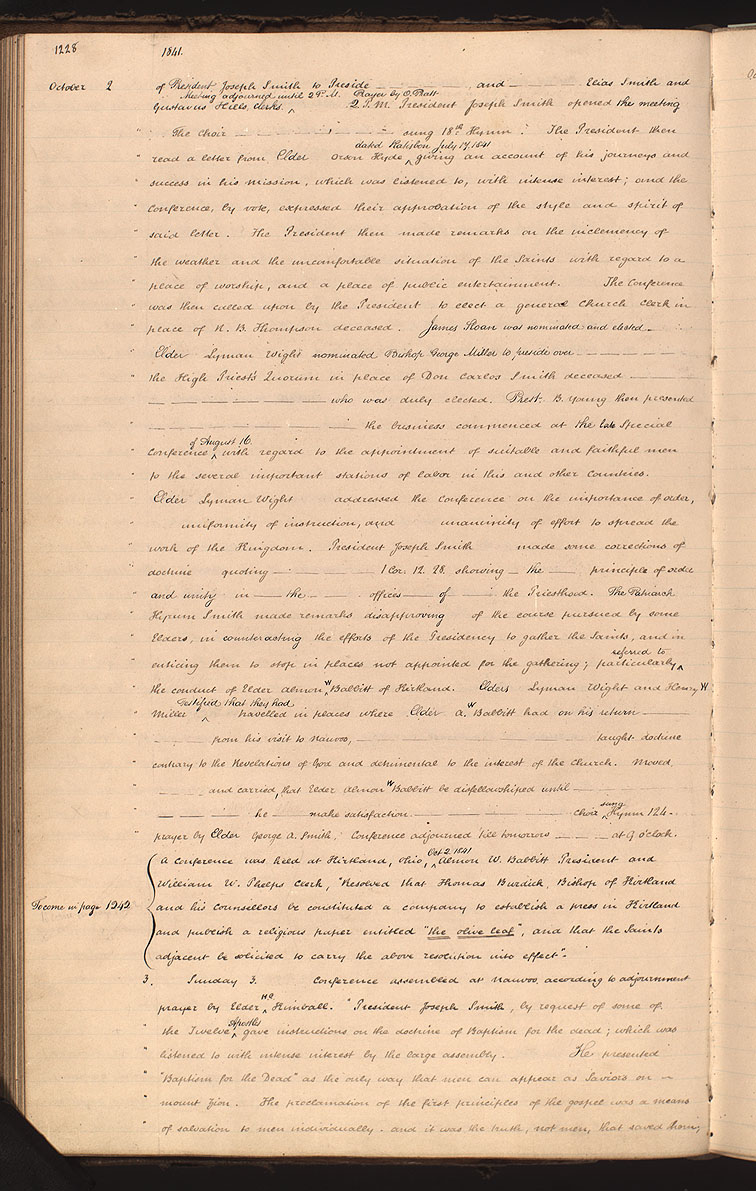 1228 1841.
October 2 of President Joseph Smith to Preside ——— and ——— Elias Smith and
Meeting adjourned until 2 P.M. Prayer by O. Pratt
Gustavus Hills, clerks. ^ 2 P.M. President Joseph Smith opened the meeting
" The choir ——— sung 18th Hymn. The President then
dated Ratisbon July 17, 1841
" read a letter from Elder Orson Hyde ^ giving an account of his journeys and
" success in his mission, which was listened to, with intense interest; and the
" Conference, by vote, expressed their approbation of the style and spirit of
" said letter. The President then made remarks on the inclemency of
" the weather and the uncomfortable situation of the Saints with regard to a
" place of worship, and a place of public entertainment. The Conference
" was then called upon by the President to elect a general Church Clerk in
" place of R. B. Thompson deceased. James Sloan was nominated and elected —
" Elder Lyman Wight nominated Bishop George Miller to preside over ———
" the High Priest's Quorum in place of Don Carlos Smith deceased ———
" ——— who was duly elected. Prest. B. Young then presented
" ——— the business commenced at the late Special
of August 16.
" Conference ^ with regard to the appointment of suitable and faithful men
" to the several important stations of labor in this and other countries.
" Elder Lyman Wight addressed the conference on the importance of order,
" uniformity of instruction, and unanimity of effort to spread the
" work of the Kingdom. President Joseph Smith made some corrections of
" doctrine quoting ——— 1 Cor. 12. 28. showing — the ——— principle of order
" and unity in — the ——— offices — of ——— the Priesthood. The Patriarch
" Hyrum Smith made remarks disapproving of the course pursued by some
" Elders, in counteracting the efforts of the Presidency to gather the Saints, and in
referred to
" enticing them to stop in places not appointed for the gathering; particularly ^
" the conduct of Elder Almon W Babbitt of Kirtland. Elders Lyman Wight and Henry W
testified that they had
" Miller ^ travelled in places where Elder A. W Babbitt had on his return ———
" ——— from his visit to Nauvoo, ——— taught doctrine
" contrary to the Revelations of God and detrimental to the interest of the Church. Moved,
" ——— and carried, that Elder Almon W Babbitt be disfellowshiped until ———
sung
" ——— he ——— make satisfaction ——— Choir ^ Hymn 124.
" prayer by Elder George A. Smith, Conference adjourned till tomorrow ——— at 9 o'clock.
Oct 2 1841
A conference was held at Kirtland, Ohio, ^ Almon W. Babbitt President and
William W. Phelps Clerk, "Resolved that Thomas Burdick, Bishop of Kirtland
To come in page 1242 and his counsellors be constituted a company to establish a press in Kirtland
and publish a religious paper entitled "the olive leaf", and that the Saints
adjacent be solicited to carry the above resolution into effect".
3. Sunday 3. Conference assembled at Nauvoo, according to adjournment
H C
prayer by Elder ^ Kimball. "President Joseph Smith, by request of some of
Apostles
" the Twelve ^ gave instructions on the doctrine of Baptism for the dead; which was
" listened to with intense interest by the large assembly. He presented
" "Baptism for the Dead" as the only way that men can appear as Saviors on —
" mount Zion. The proclamation of the first principles of the gospel was a means
" of salvation to men individually, and it was the truth, not men, that saved them;